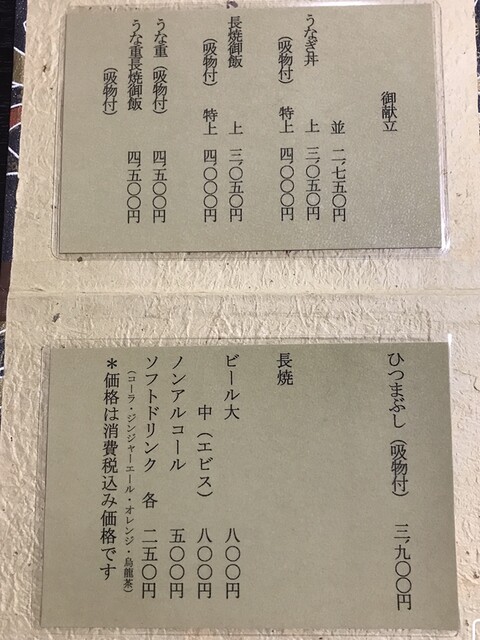 御献立
並 二、七五〇円
うなぎ丼 上 三、〇五〇円
(吸物付) 特上 四、〇〇〇円
長焼御飯 上 三、〇五〇円
(吸物付) 特上 四、〇〇〇円
うな重(吸物付) 四、五〇〇円
うな重長焼御飯 四、五〇〇円
(吸物付)
ひつまぶし(吸物付) 三、九〇〇円
長焼
ビール大 八〇〇円
中(エビス) 八〇〇円
ノンアルコール 五〇〇円
ソフトドリンク 各 二五〇円
(コーラ・ジンジャーエール・オレンジ・烏龍茶)
*価格は消費税込み価格です